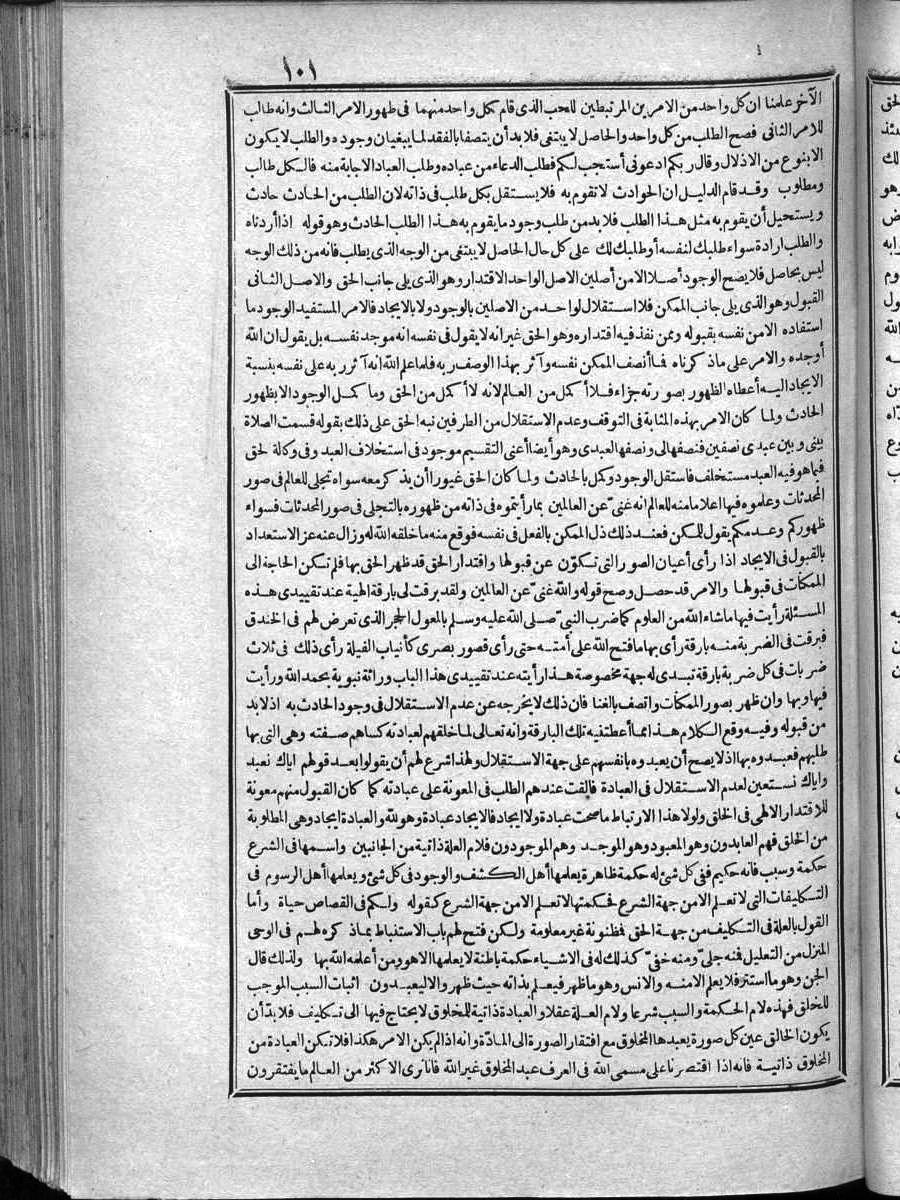 ١٠١
الآخر علمنا ان كل واحد من الامرين المرتبطين للحب الذى قام بكل واحد منهما فى ظهور الامر الثالث وانه طالب
للامر الثانى فصح الطلب من كل واحد والحاصل لا يبتغى فلا بد أن يتصفا بالفقد لما يبغيان وجوده والطلب لا يكون
الا بنوع من الاذلال وقال ربكم ادعونى أستجب لكم فطلب الدعاء من عباده وطلب العباد الاجابة منه فالكل طالب
ومطلوب وقد قام الدليل ان الحوادث لا تقوم به فلا يستقل بكل طلب فى ذاته لان الطلب من الحادث حادث
ويستحيل أن يقوم به مثل هذا الطلب فلا بد من طلب وجود ما يقوم به هذا الطلب الحادث وهو قوله اذا أردناه
والطلب ارادة سواء طلبك لنفسه أو طلبك لك على كل حال الحاصل لا يبتغى من الوجه الذى يطلب فانه من ذلك الوجه
ليس بحاصل فلا يصح الوجود أصلا الا من أصلين الاصل الواحد الاقتدار وهو الذى يلى جانب الحق والاصل الثانى
القبول وهو الذى يلى جانب الممكن فلا استقلال لواحد من الاصلين بالوجود ولا بالايجاد فالامر المستفيد الوجود ما
استفاده الا من نفسه بقبوله وممن نفذ فيه اقتداره وهو الحق غير انه لا يقول فى نفسه انه موجد نفسه بل يقول ان الله
أوجده والامر على ماذكرناه فما أنصف الممكن نفسه وآثر بهذا الوصف ربه فلما علم الله انه آثر ربه على نفسه بنسبة
الايجاد اليه أعطاه الظهور بصورته جزاء فلا أكمل من العالم لانه لا أكمل من الحق وما كمل الوجود الا بظهور
الحادث ولما كان الامر بهذه المثابة فى التوقف وعدم الاستقلال من الطرفين نبه الحق على ذلك بقوله قسمت الصلاة
بينى وبين عبدى نصفين فنصفها لى ونصفها لعبدى وهو أيضا أعنى التقسيم موجود فى استخلاف العبد وفى وكالة لحق
فيما هو فيه العبد مستخلف فاستقل الوجود وكمل بالحادث ولما كان الحق غيورا أن يذكر معه سواه تجلى للعالم فى صور
المحدثات وعلموه فيها اعلاما منه للعالم انه غنىّ عن العالمين بما رأيتموه فى ذاته من ظهوره بالتجلى فى صور المحدثات فسواء
ظهوركم وعدمكم يقول للممكن فعند ذلك ذل الممكن بالفعل فى نفسه فوقع منه ما خلقه الله له وزال عنه عز الاستعداد
بالقبول فى الايجاد اذا رأى أعيان الصور التى تتكوّن عن قبولها واقتدار الحق قد ظهر الحق بها فلم تكن الحاجة الى
الممكنات فى قبولها والامر قد حصل وصح قوله والله غنىّ عن العالمين ولقد برقت لى بارقة الهية عند تقييدى هذه
المسئلة رأيت فيها ما شاء الله من العلوم كما ضرب النبىّ صلى الله عليه وسلم بالمعول الحجر الذى تعرض لهم فى الخندق
فبرقت فى الضربة منه بارقة رأى بها ما فتح الله على أمته حتى رأى قصور بصرى كأنياب الفيلة رأى ذلك فى ثلاث
ضربات فى كل ضربة بارقة تبدى له جهة مخصوصة هذا رأيته عند تقييدى هذا الباب وراثة نبوية بحمد الله ورأيت
فيها وبها وان ظهر بصور الممكنات واتصف بالغنا فان ذلك لا يخرجه عن عدم الاستقلال فى وجود الحادث به اذ لا بد
من قبوله وفيه وقع الكلام هذا مما أعطتنيه تلك البارقة وانه تعالى لما خلقهم لعبادته كساهم صفته وهى التى بها
طلبهم فعبدوه بها اذ لا يصح أن يعبدوه بانفسهم على جهة الاستقلال ولهذا شرع لهم أن يقولوا بعد قولهم اياك نعبد
واياك نستعين لعدم الاستقلال فى العبادة فالقت عندهم الطلب فى المعونة على عبادته كما كان القبول منهم معونة
للاقتدار الالهى فى الخلق ولولا هذا الارتباط ما صحت عبادة ولا ايجاد فالايجاد عبادة وهو لله والعبادة ايجاد وهى المطلوبة
من الخلق فهم العابدون وهو المعبود وهو الموجد وهم الموجودون فلام العلة ذاتية من الجانبين واسمها فى الشرع
حكمة وسبب فانه حكيم ففى كل شئ له حكمة ظاهرة يعلمها أهل الكشف والوجود فى كل شئ ويعلمها أهل الرسوم فى
التكليفات التى لا تعلم الا من جهة الشرع فحكمتها لا تعلم الا من جهة الشرع كقوله ولكم فى القصاص حياة وأما
القول بالعلة فى التكليف من جهة الحق فظنونة غير معلومة ولكن فتح لهم باب الاستنباط بما ذكره لهم فى الوحى
المنزل من التعليل فمنه جلىّ ومنه خفىّ كذلك له فى الاشياء حكمة باطنة لا يعلمها الا هو ومن أعلمه الله بها ولذلك قال
الجن وهو ما استتر فلا يعلم الا منه والانس وهو ما ظهر فيعلم بذاته حيث ظهر والا ليعبدون اثبات السبب الموجب
للخلق فهذه لام الحكمة والسبب شرعا ولام العلة عقلا والعبادة ذاتية للمخلوق لا يحتاج فيها الى تكليف فلا بدّ أن
يكون الخالق عين كل صورة يعبدها المخلوق مع افتقار الصورة الى المادّة وانه اذا لم يكن الامر هكذا فلا تكن العبادة من
المخلوق ذاتية فانه اذا اقتصرنا على مسمى الله فى العرف عبد المخلوق غير الله فانا نرى الاكثر من العالم ما يفتقرون